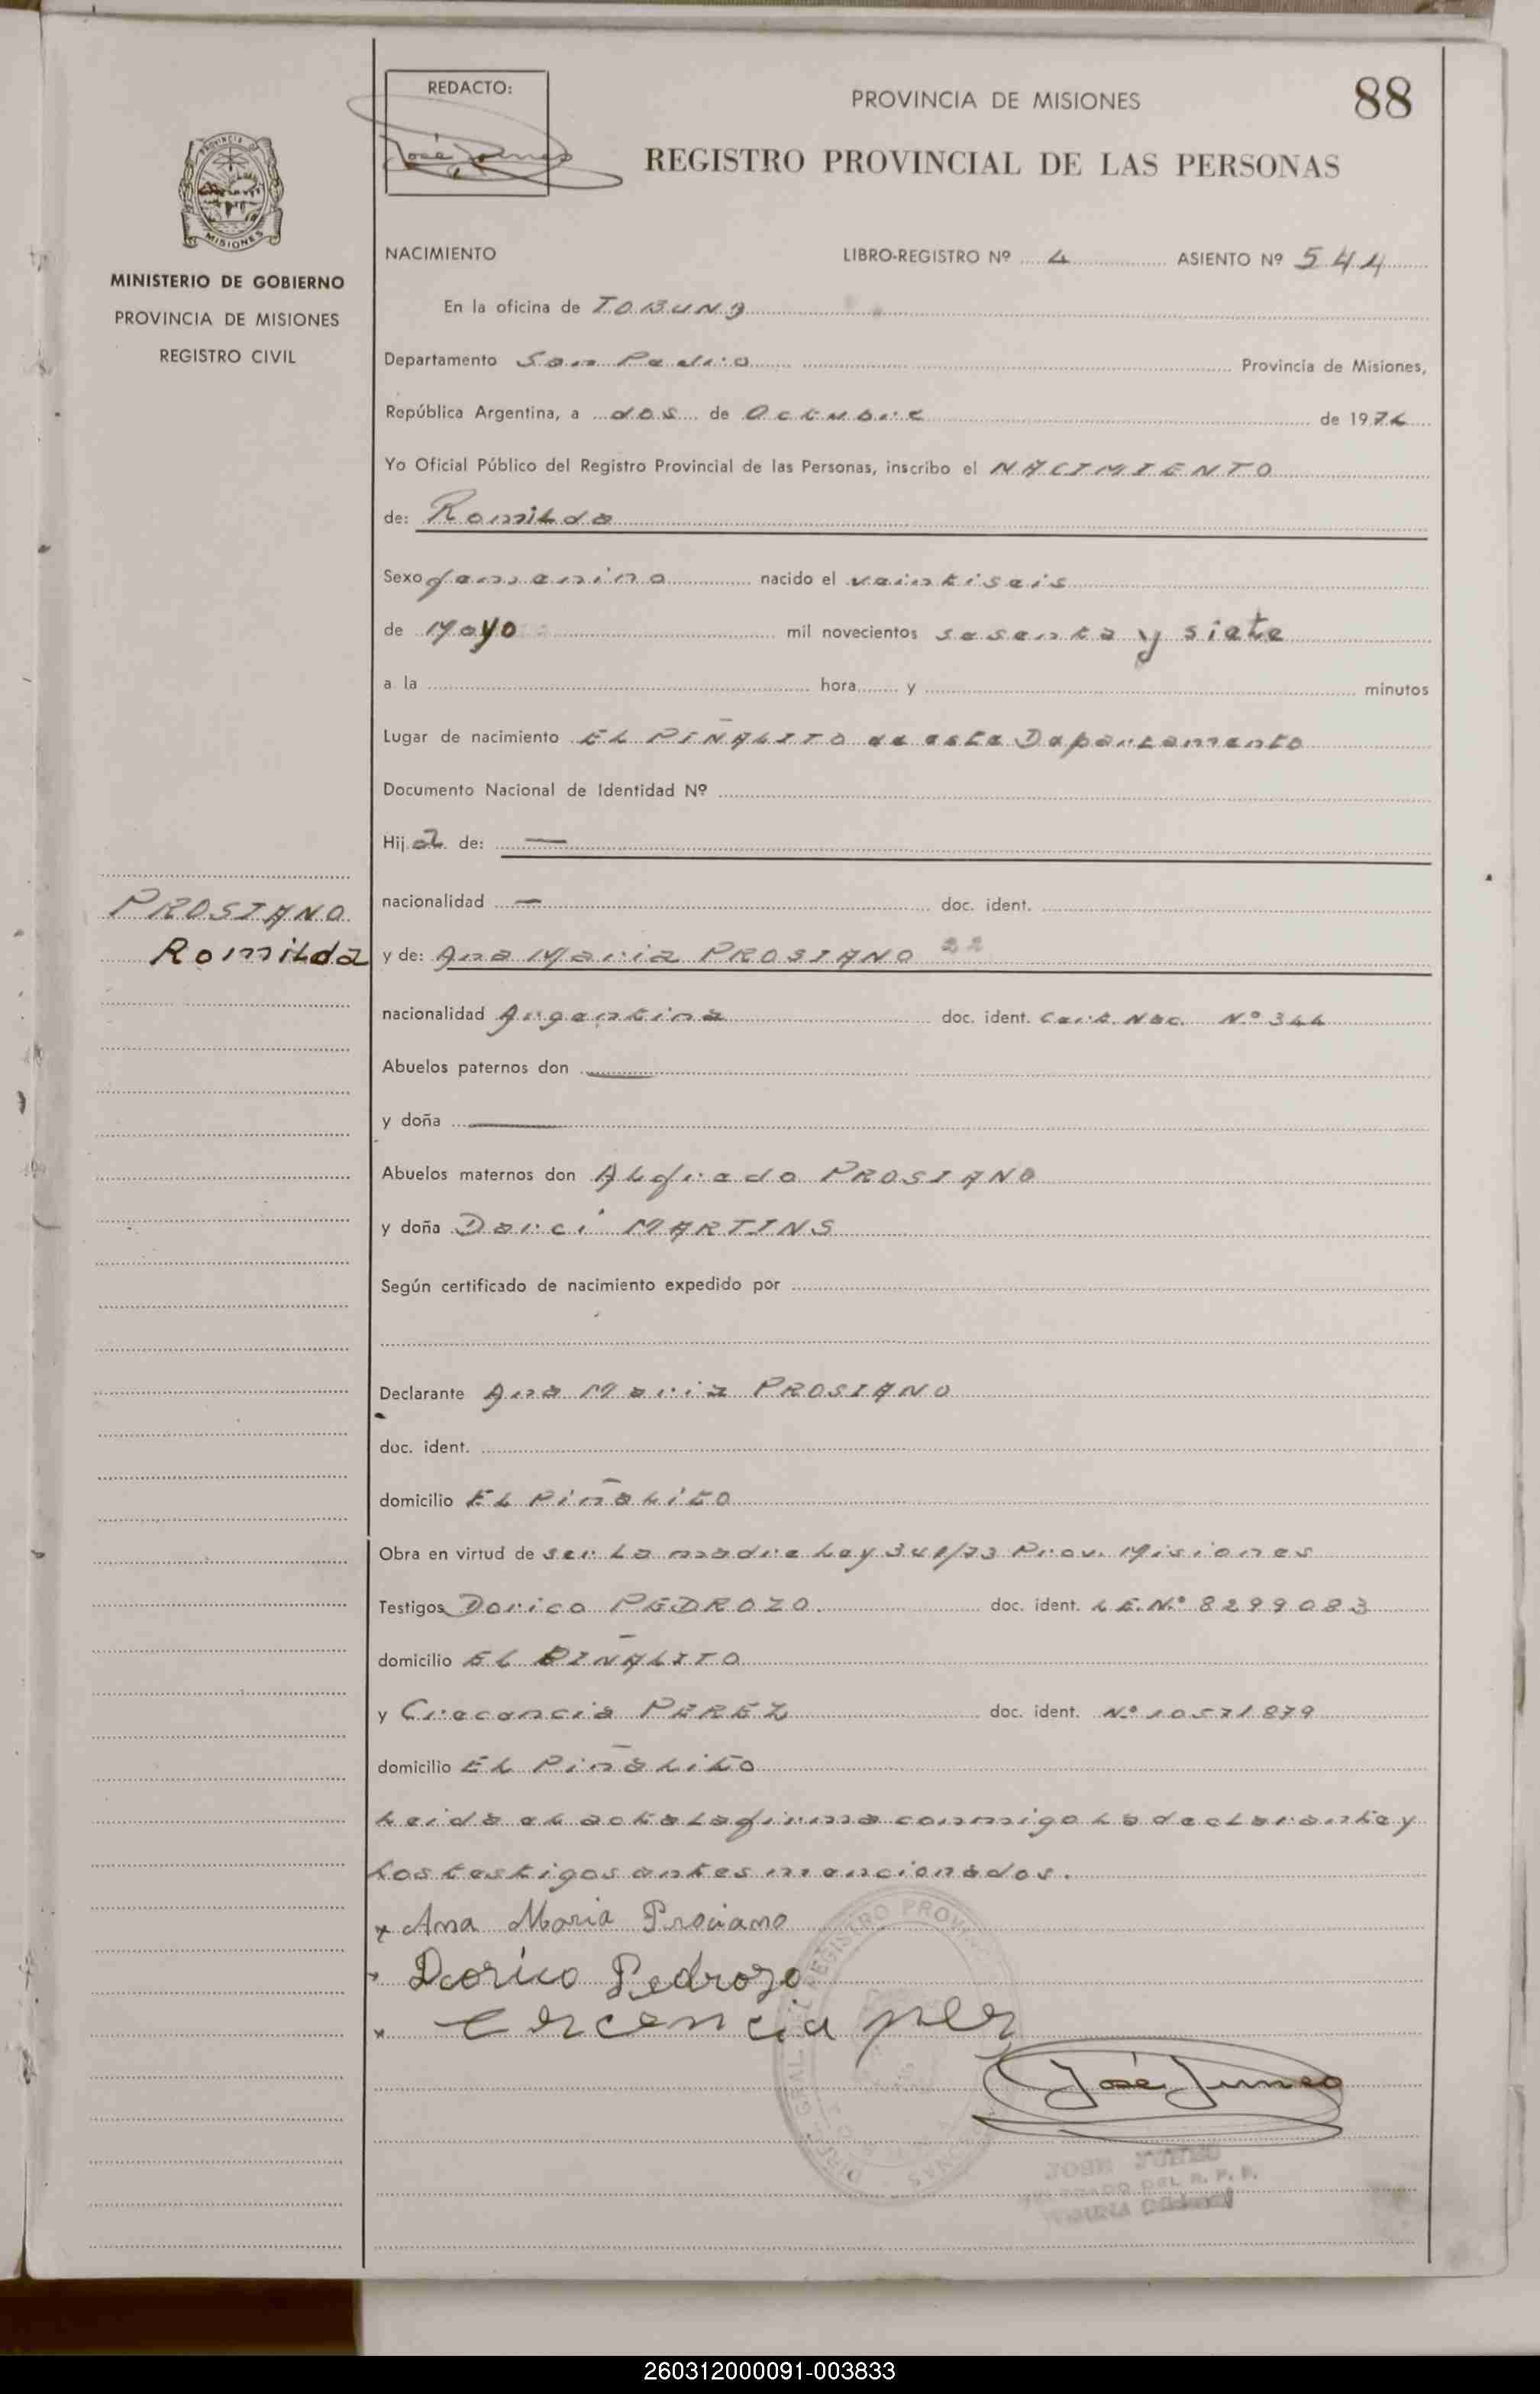 REDACTO:
PROVINCIA DE MISIONES
88
REGISTRO PROVINCIAL DE LAS PERSONAS
PROVINCIA DE
MISIONES
MINISTERIO DE GOBIERNO
PROVINCIA DE MISIONES
REGISTRO CIVIL
NACIMIENTO LIBRO-REGISTRO Nº 4 ASIENTO Nº 544
En la oficina de TOBUNA
Departamento San Pedro Provincia de Misiones,
República Argentina, a dos de Octubre de 1974
Yo Oficial Público del Registro Provincial de las Personas, inscribo el NACIMIENTO
de: Romilda
Sexo femenino nacido el veintiseis
de Mayo mil novecientos sesenta y siete
a la hora y minutos
Lugar de nacimiento EL PIÑALITO de este Departamento
Documento Nacional de Identidad Nº
Hija de: —
nacionalidad — doc. ident.
PROSIANO
Romilda
y de: Ana Maria PROSIANO
nacionalidad Argentina doc. ident. Cert. Nac. Nº 344
Abuelos paternos don —
y doña —
Abuelos maternos don Alfredo PROSIANO
y doña Darci MARTINS
Según certificado de nacimiento expedido por
Declarante Ana Maria PROSIANO
doc. ident.
domicilio EL Piñalito
Obra en virtud de ser la madre Ley 341/73 Prov. Misiones
Testigos Dorico PEDROZO doc. ident. L.E. Nº 8299083
domicilio EL PIÑALITO
y Crecencia PEREZ doc. ident. Nº 10571879
domicilio EL Piñalito
Leida el acta la firma conmigo la declarante y
los testigos antes mencionados.
x Ana Maria Prosiano
Dorico Pedrozo
x Crcencia per
José Juneo
JOSE JUNEO
DEL R. P. P.
260312000091-003833